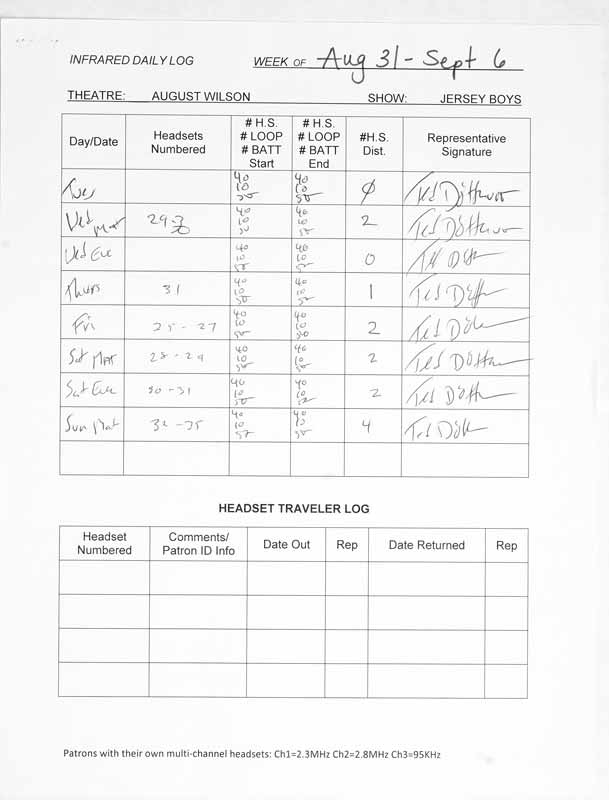 INFRARED DAILY LOG WEEK OF Aug 31 - Sept 6
THEATRE: AUGUST WILSON SHOW: JERSEY BOYS
Day/Date Headsets Numbered # H.S. # LOOP # BATT Start # H.S. # LOOP # BATT End #H.S. Dist. Representative Signature
Tues 40 10 50 40 10 50 0 Ted
Wed Mat 29 30 40 10 50 40 10 50 2 Ted
Wed Eve 40 10 50 40 10 50 0 Ted
Thurs 31 40 10 50 40 10 50 1 Ted
Fri 25 - 27 40 10 50 40 10 50 2 Ted
Sat Mat 28 - 29 40 10 50 40 10 50 2 Ted
Sat Eve 30 - 31 40 10 50 40 10 50 2 Ted
Sun Mat 32 - 35 40 10 50 40 10 50 4 Ted
HEADSET TRAVELER LOG
Headset Numbered Comments/ Patron ID Info Date Out Rep Date Returned Rep
Patrons with their own multi-channel headsets: Ch1=2.3MHz Ch2=2.8MHz Ch3=95KHz